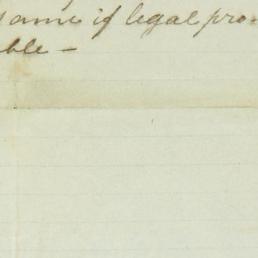 same if legal pro-
ble -